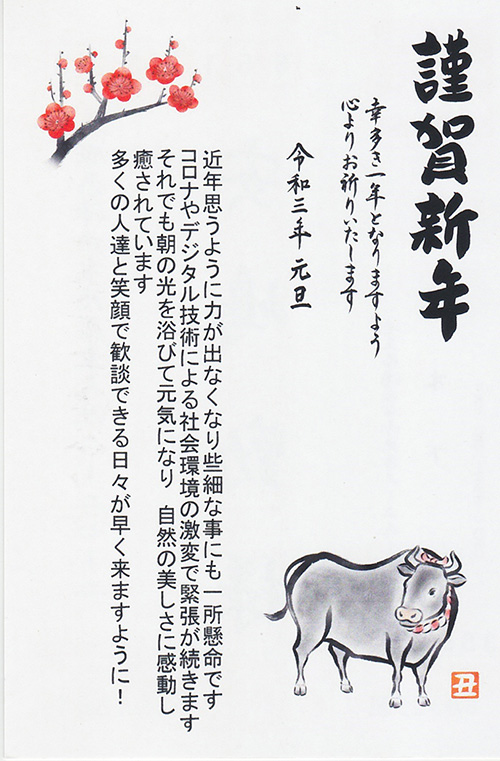 謹賀新年
幸多き一年となりますよう
心よりお祈りいたします
令和三年 元旦
近年思うように力が出なくなり些細な事にも一所懸命です
コロナやデジタル技術による社会環境の激変で緊張が続きます
それでも朝の光を浴びて元気になり 自然の美しさに感動し
癒されています
多くの人達と笑顔で歓談できる日々が早く来ますように!
丑